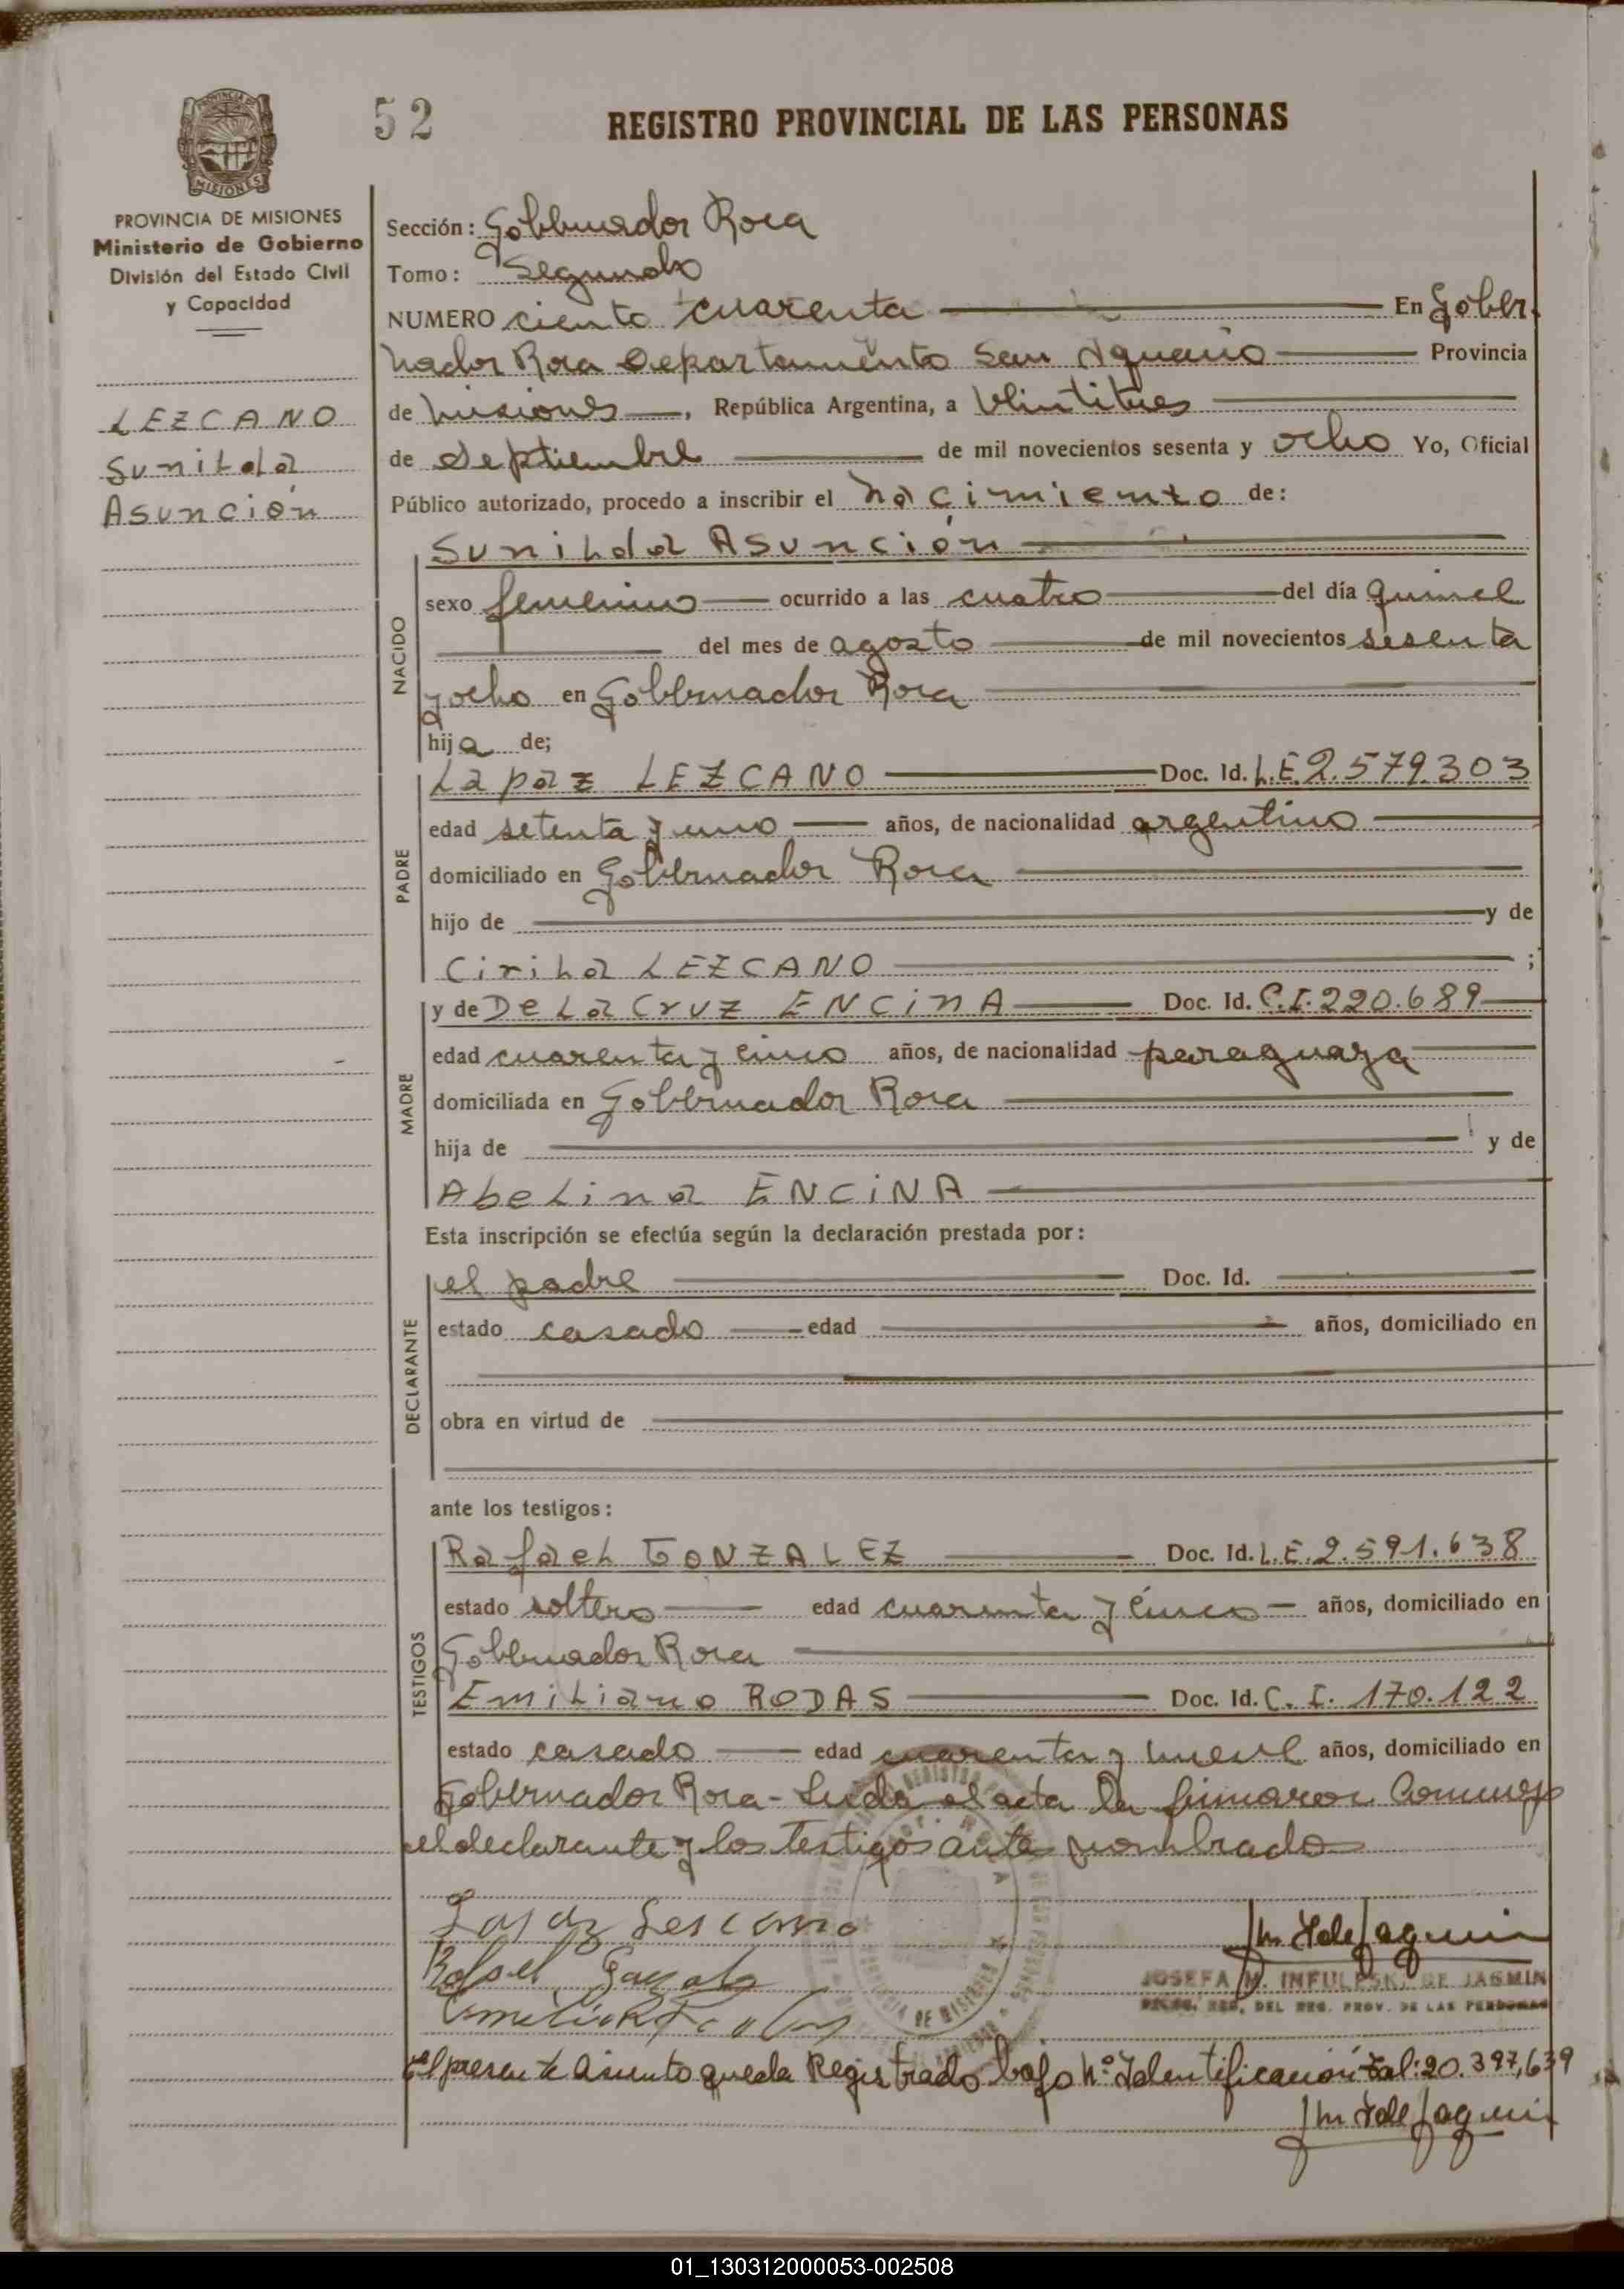 52
REGISTRO PROVINCIAL DE LAS PERSONAS
PROVINCIA DE MISIONES
Ministerio de Gobierno
División del Estado Civil
y Capacidad
LEZCANO
Sunilda
Asunción
Sección: Gobernador Roca
Tomo: Segundo
NUMERO ciento cuarenta En Gober
nador Roca Departamento San Ignacio Provincia
de Misiones, República Argentina, a Veintitres
de Septiembre de mil novecientos sesenta y ocho Yo, Oficial
Público autorizado, procedo a inscribir el nacimiento de:
Sunilda Asunción
NACIDO
sexo femenino ocurrido a las cuatro del día quince
del mes de agosto de mil novecientos sesenta
y ocho en Gobernador Roca
hija de;
PADRE
Lapaz LEZCANO Doc. Id. L.E. 2.579.303
edad setenta y uno años, de nacionalidad argentino
domiciliado en Gobernador Roca
hijo de y de
Cirila LEZCANO ;
MADRE
y de De La Cruz ENCINA Doc. Id. C.I. 220.689
edad cuarenta y cinco años, de nacionalidad paraguaya
domiciliada en Gobernador Roca
hija de y de
Abelina ENCINA
Esta inscripción se efectúa según la declaración prestada por:
DECLARANTE
el padre Doc. Id.
estado casado edad años, domiciliado en
obra en virtud de
ante los testigos:
TESTIGOS
Rafael GONZALEZ Doc. Id. L.E. 2.591.638
estado soltero edad cuarenta y cinco años, domiciliado en
Gobernador Roca
Emiliano RODAS Doc. Id. C.I. 170.122
estado casado edad cuarenta y nueve años, domiciliado en
Gobernador Roca - Leida el acta la firmaron Conmigo
el declarante y los testigos ante nombrados
Lapaz Lescano
Rafael Gonzalez
JOSEFA M. INFULESKI DE JASMIN
DEL REG. PROV. DE LAS PERSONAS
PROVINCIA DE MISIONES
El presente Asiento queda Registrado bajo Nº Identificación tal: 20.397,639
01_130312000053-002508